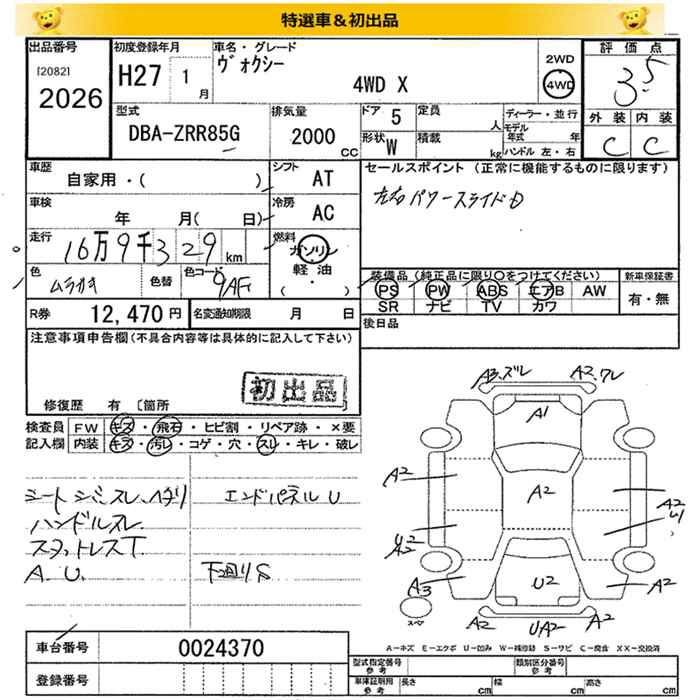 特選車&初出品
出品番号
[2082]
2026
初度登録年月
H27 1 月
車名・グレード
ヴォクシー
4WD X
2WD
4WD
評価点
3.5
外装 内装
C C
型式
DBA-ZRR85G
排気量
2000 CC
ドア 5
定員 人
形状 W
積載 kg
ディーラー・並行
モデル年式 年
ハンドル 左・右
車歴
自家用・( )
シフト AT
セールスポイント (正常に機能するものに限ります)
左右パワースライドD
車検 年 月( 日)
冷房 AC
走行 16万9千329 km
燃料 ガソリン
軽・油
( ・ )
色 ムラサキ
色替
色コード 9AF
装備品 (純正品に限り○をつけてください)
PS PW ABS エアB AW
SR ナビ TV カワ
新車保証書
有・無
R券 12,470円
名変通知期限 月 日
後日品
注意事項申告欄(不具合内容等は具体的に記入して下さい)
初出品
修復歴 有 [箇所
検査員記入欄
FW キズ・飛石・ヒビ割・リペア跡・×要
内装 キズ・汚レ・コゲ・穴・スレ・キレ・破レ
シート シミ スレ ヘタリ
エンドパネル U
ハンドルスレ
スタットレスT
A.U.
下回りS
A3.ズレ A2.ワレ
A1
A2 A2 A2
U1
U2
A2
A3 U2 A2
スペア
A2 UA2 A2
A-キズ E-エクボ U-凹み W-補修跡 S-サビ C-腐食 XX-交換済
車台番号 0024370
登録番号
型式指定番号 参考
類別区分番号 参考
車庫証明用 参考
長さ cm 幅 cm 高さ cm